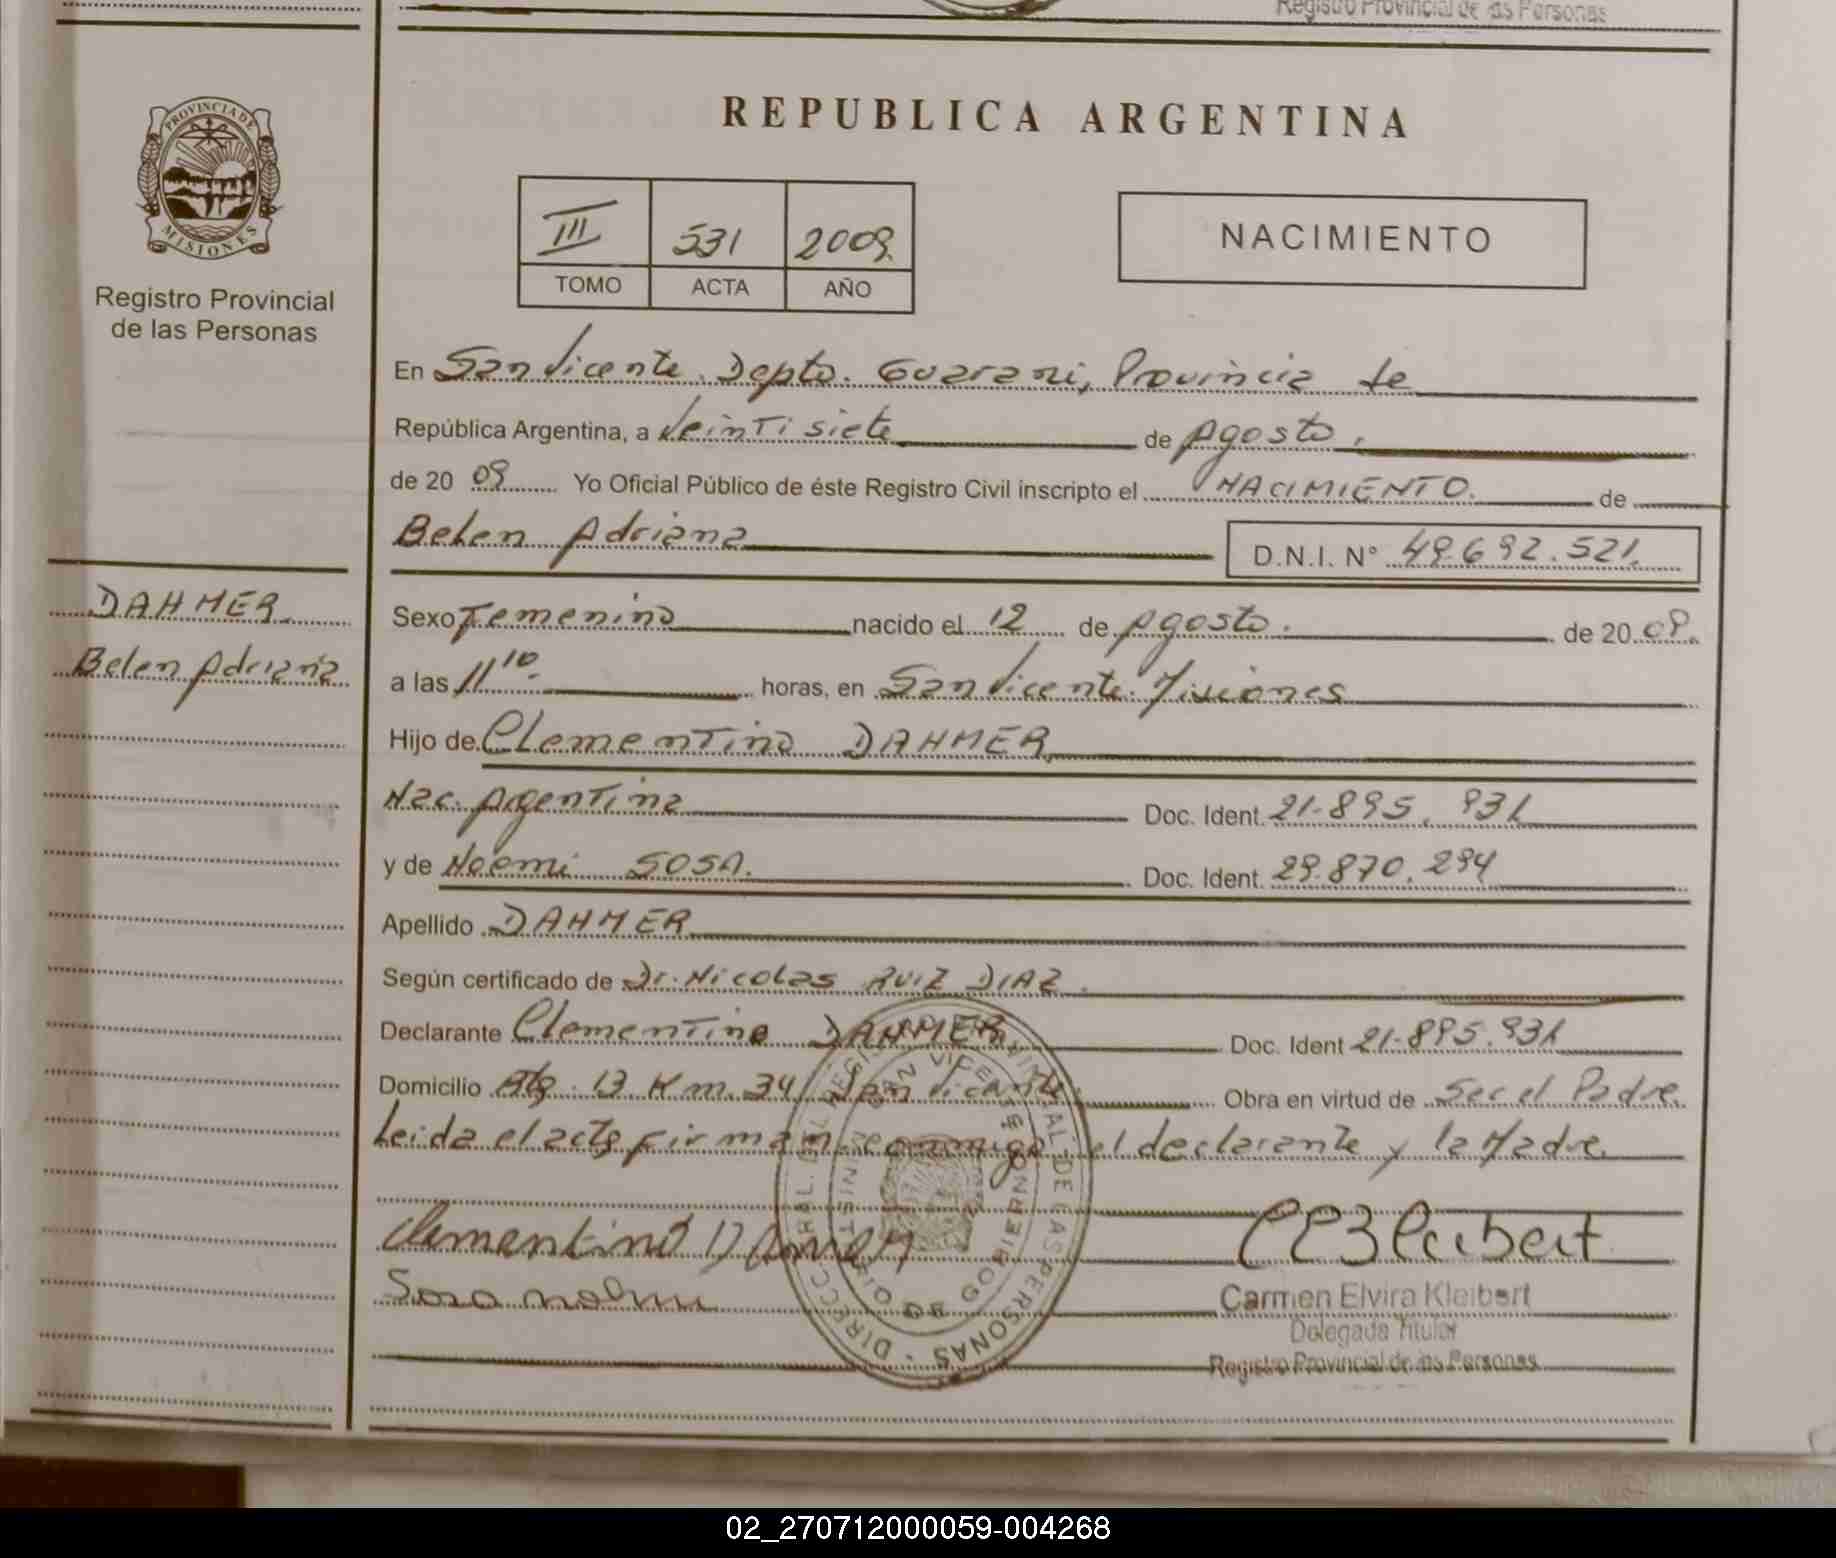 Registro Provincial de las Personas
PROVINCIA DE
MISIONES
Registro Provincial
de las Personas
REPUBLICA ARGENTINA
III 531 2009
TOMO ACTA AÑO
NACIMIENTO
En San Vicente. Depto. Guarani, Provincia de
República Argentina, a Veintisiete de Agosto.
de 20 09 Yo Oficial Público de éste Registro Civil inscripto el NACIMIENTO. de
Belen Adriana D.N.I. N° 49.692.521.
DAHMER
Belen Adriana
Sexo Femenino nacido el 12 de Agosto. de 20 09.
a las 11 10. horas, en San Vicente. Misiones
Hijo de Clementino DAHMER
Nac. Argentina Doc. Ident. 21.895.931
y de Noemi SOSA. Doc. Ident. 29.870.294
Apellido DAHMER
Según certificado de Dr. Nicolas RUIZ DIAZ.
Declarante Clementino DAHMER Doc. Ident 21.895.931
Domicilio Rta. 13 Km. 34 San Vicente Obra en virtud de Ser el Padre
Leida el acta firman conmigo el declarante y la Madre
Clementino Dahmer
Sosa Noemi
Carmen Elvira Kleibert
Delegada Titular
Registro Provincial de las Personas
02_270712000059-004268